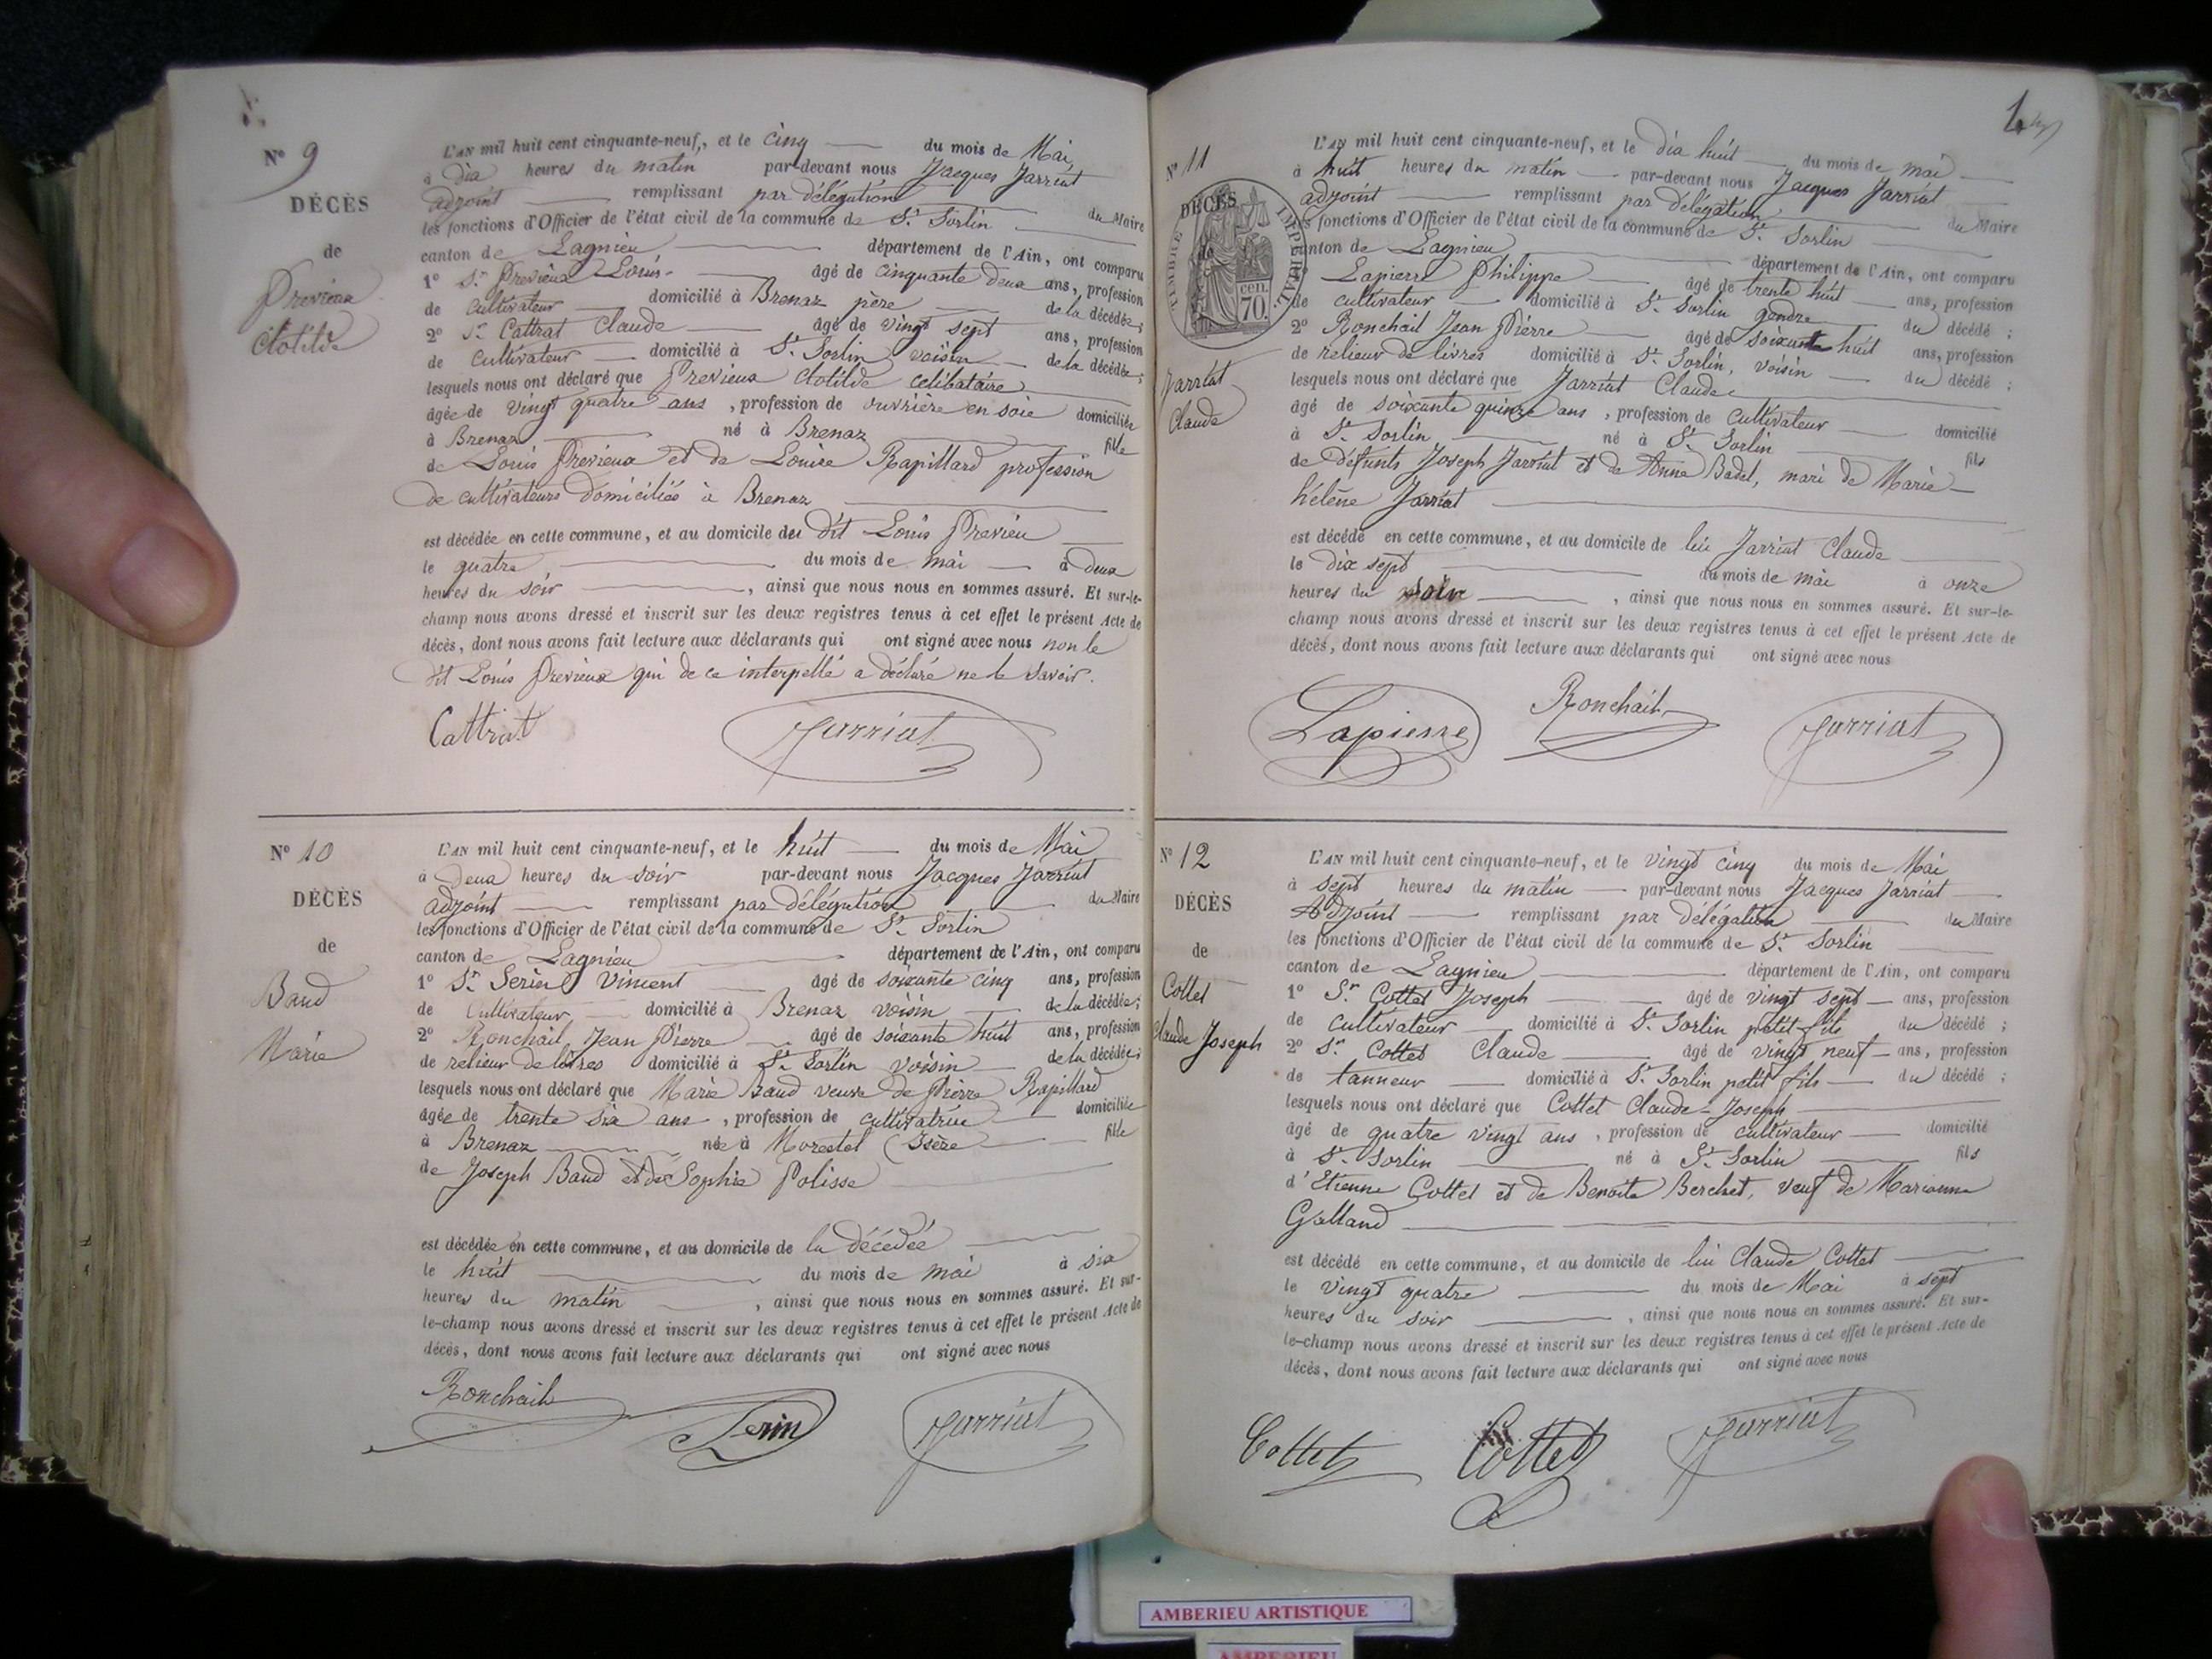 N° 9
DÉCÈS
de
Previeux
Clotilde
L'AN mil huit cent cinquante-neuf, et le cinq du mois de Mai
à dix heures du matin par-devant nous Jacques Jarriat
adjoint remplissant par délégation du Maire
les fonctions d'Officier de l'état civil de la commune de St. Sorlin
canton de Lagnieu département de l'Ain, ont comparu
1° Sr. Previeux Louis âgé de cinquante deux ans, profession
de cultivateur domicilié à Brenaz père de la décédée;
2° Sr. Cattrat Claude âgé de vingt sept ans, profession
de cultivateur domicilié à St. Sorlin voisin de la décédée;
lesquels nous ont déclaré que Previeux Clotilde celibataire
âgée de vingt quatre ans, profession de ouvrière en soie domiciliée
à Brenaz né à Brenaz fille
de Louis Previeux et de Louise Rapillard profession
de cultivateurs domiciliés à Brenaz
est décédée en cette commune, et au domicile du dit Louis Previeu
le quatre du mois de mai à deux
heures du soir, ainsi que nous nous en sommes assuré. Et sur-le-
champ nous avons dressé et inscrit sur les deux registres tenus à cet effet le présent Acte de
décès, dont nous avons fait lecture aux déclarants qui ont signé avec nous non le
dit Louis Previeux qui de ce interpellé a déclaré ne le savoir.
Cattrat Jarriat
N° 10
DÉCÈS
de
Baud
Marie
L'AN mil huit cent cinquante-neuf, et le huit du mois de Mai
à deux heures du soir par-devant nous Jacques Jarriat
adjoint remplissant par délégation du Maire
les fonctions d'Officier de l'état civil de la commune de St. Sorlin
canton de Lagnieu département de l'Ain, ont comparu
1° Sr. Serin Vincent âgé de soixante cinq ans, profession
de Cultivateur domicilié à Brenaz voisin de la décédée;
2° Ronchail Jean Pierre âgé de soixante huit ans, profession
de relieur de livres domicilié à St. Sorlin voisin de la décédée;
lesquels nous ont déclaré que Marie Baud veuve de Pierre Rapillard
âgée de trente six ans, profession de cultivatrice domiciliée
à Brenaz née à Morestel (Isère fille
de Joseph Baud et de Sophie Polisse
est décédée en cette commune, et au domicile de la décédée
le huit du mois de mai à six
heures du matin, ainsi que nous nous en sommes assuré. Et sur-
le-champ nous avons dressé et inscrit sur les deux registres tenus à cet effet le présent Acte de
décès, dont nous avons fait lecture aux déclarants qui ont signé avec nous
Ronchail Serin Jarriat
N° 11
DÉCÈS
TIMBRE IMPÉRIAL
70 cen.
Jarriat
Claude
L'AN mil huit cent cinquante-neuf, et le dix huit du mois de mai
à huit heures du matin par-devant nous Jacques Jarriat
adjoint remplissant par délégation du Maire
les fonctions d'Officier de l'état civil de la commune de St. Sorlin
canton de Lagnieu département de l'Ain, ont comparu
Lapierre Philippe âgé de trente huit ans, profession
de cultivateur domicilié à St. Sorlin gendre du décédé;
2° Ronchail Jean Pierre âgé de soixante huit ans, profession
de relieur de livres domicilié à St. Sorlin, voisin du décédé;
lesquels nous ont déclaré que Jarriat Claude
âgé de soixante quinze ans, profession de cultivateur domicilié
à St. Sorlin né à St. Sorlin fils
de défunts Joseph Jarriat et de Anne Badel, mari de Marie-
hélène Jarriat
est décédé en cette commune, et au domicile de lui Jarriat Claude
le dix sept du mois de mai à onze
heures du soir, ainsi que nous nous en sommes assuré. Et sur-le-
champ nous avons dressé et inscrit sur les deux registres tenus à cet effet le présent Acte de
décès, dont nous avons fait lecture aux déclarants qui ont signé avec nous
Lapierre Ronchail Jarriat
N° 12
DÉCÈS
de
Collet
Claude Joseph
L'AN mil huit cent cinquante-neuf, et le vingt cinq du mois de Mai
à sept heures du matin par-devant nous Jacques Jarriat
Adjoint remplissant par délégation du Maire
les fonctions d'Officier de l'état civil de la commune de St. Sorlin
canton de Lagnieu département de l'Ain, ont comparu
1° Sr. Cottet Joseph âgé de vingt sept ans, profession
de cultivateur domicilié à St. Sorlin petit fils du décédé;
2° Sr. Cottet Claude âgé de vingt neuf ans, profession
de tanneur domicilié à St. Sorlin petit fils du décédé;
lesquels nous ont déclaré que Cottet Claude-Joseph
âgé de quatre vingt ans, profession de cultivateur domicilié
à St. Sorlin né à St. Sorlin fils
d'Etienne Cottet et de Benoite Berchet, veuf de Marianne
Galland
est décédé en cette commune, et au domicile de lui Claude Cottet
le vingt quatre du mois de Mai à sept
heures du soir, ainsi que nous nous en sommes assuré. Et sur-
le-champ nous avons dressé et inscrit sur les deux registres tenus à cet effet le présent Acte de
décès, dont nous avons fait lecture aux déclarants qui ont signé avec nous
Cottet Cottet Jarriat
AMBERIEU ARTISTIQUE
AMBERIEU